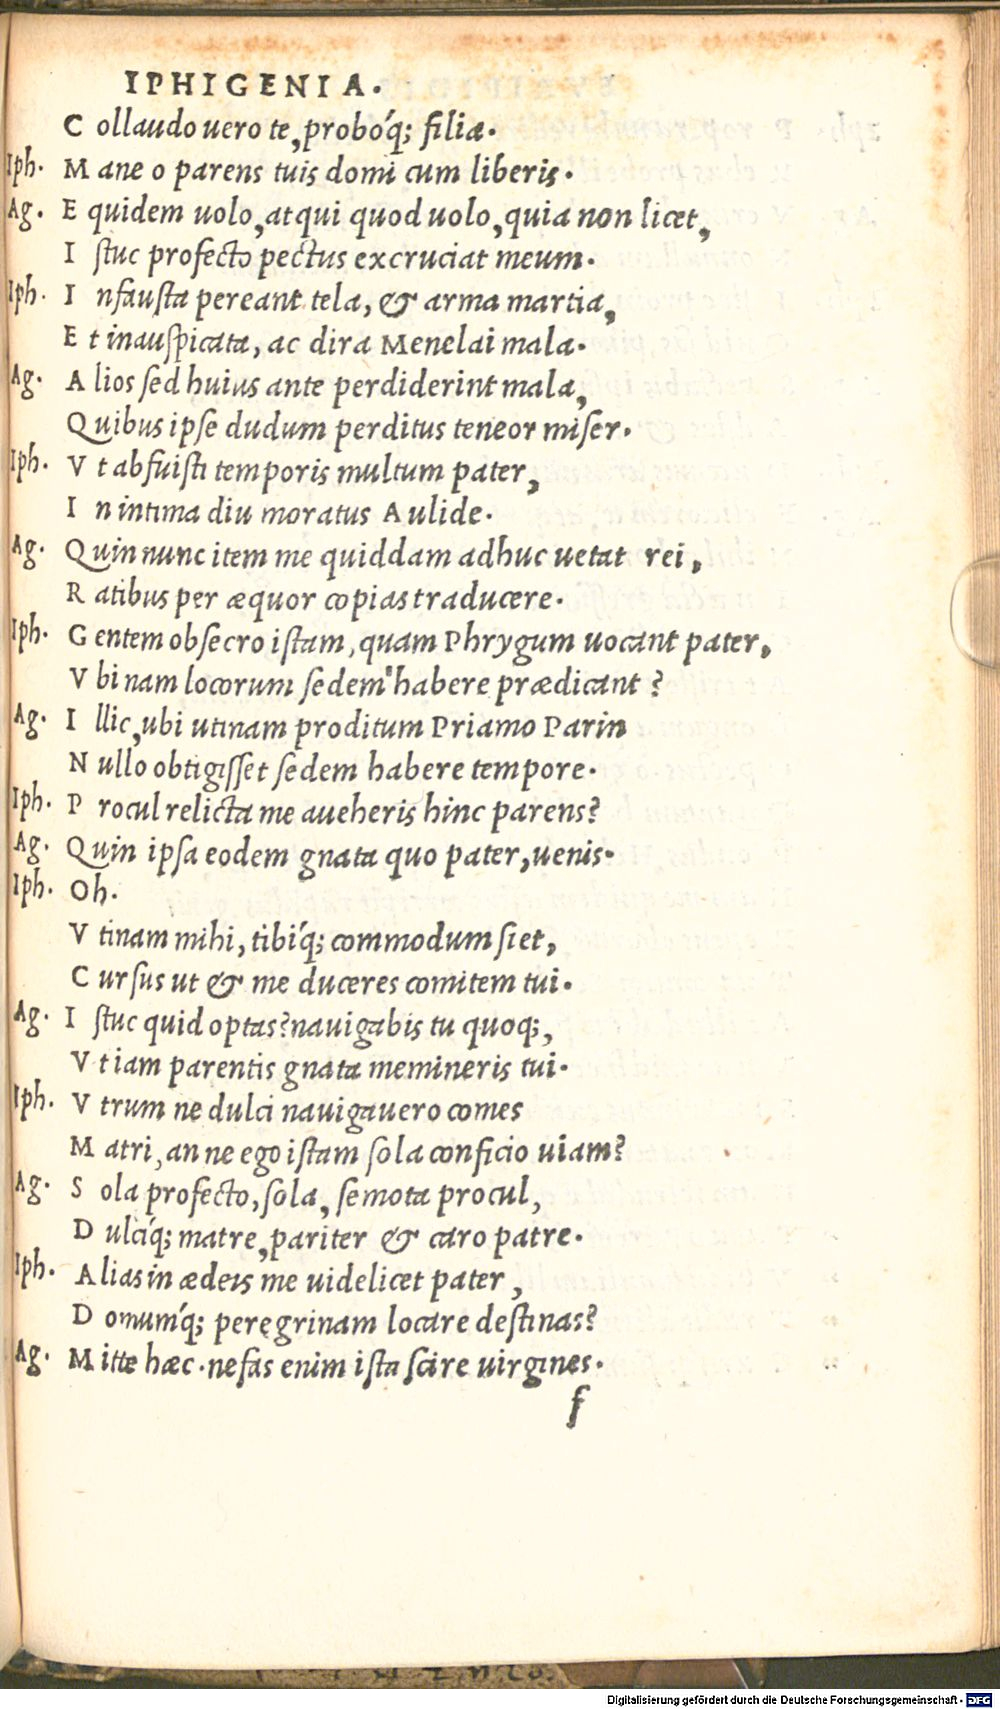 IPHIGENIA.
C ollaudo uero te, probóq; filia.
Iph. M ane o parens tuis domi cum liberis.
Ag. E quidem uolo, atqui quod uolo, quia non licet,
I stuc profecto pectus excruciat meum.
Iph. I nfausta pereant tela, & arma martia,
E t inauspicata, ac dira Menelai mala.
Ag. A lios sed huius ante perdiderint mala,
Quibus ipse dudum perditus teneor miser.
Iph. V t abfuisti temporis multum pater,
I n intima diu moratus Aulide.
Ag. Quin nunc item me quiddam adhuc uetat rei,
R atibus per æquor copias traducere.
Iph. G entem obsecro istam, quam Phrygum uocant pater,
V bi nam locorum sedem habere prædicant?
Ag. I llic, ubi utinam proditum Priamo Parin
N ullo obtigisset sedem habere tempore.
Iph. P rocul relicta me aueheris hinc parens?
Ag. Quin ipsa eodem gnata quo pater, uenis.
Iph. Oh.
V tinam mihi, tibíq; commodum siet,
C ursus ut & me duceres comitem tui.
Ag. I stuc quid optas? nauigabis tu quoq;,
V t iam parentis gnata memineris tui.
Iph. V trum ne dulci nauigauero comes
M atri, an ne ego istam sola conficio uiam?
Ag. S ola profecto, sola, semota procul,
D ulcíq; matre, pariter & caro patre.
Iph. A lias in ædeis me uidelicet pater,
D omumq́; peregrinam locare destinas?
Ag. M itte hæc. nefas enim ista scire uirgines.
f
Digitalisierung gefördert durch die Deutsche Forschungsgemeinschaft - DFG